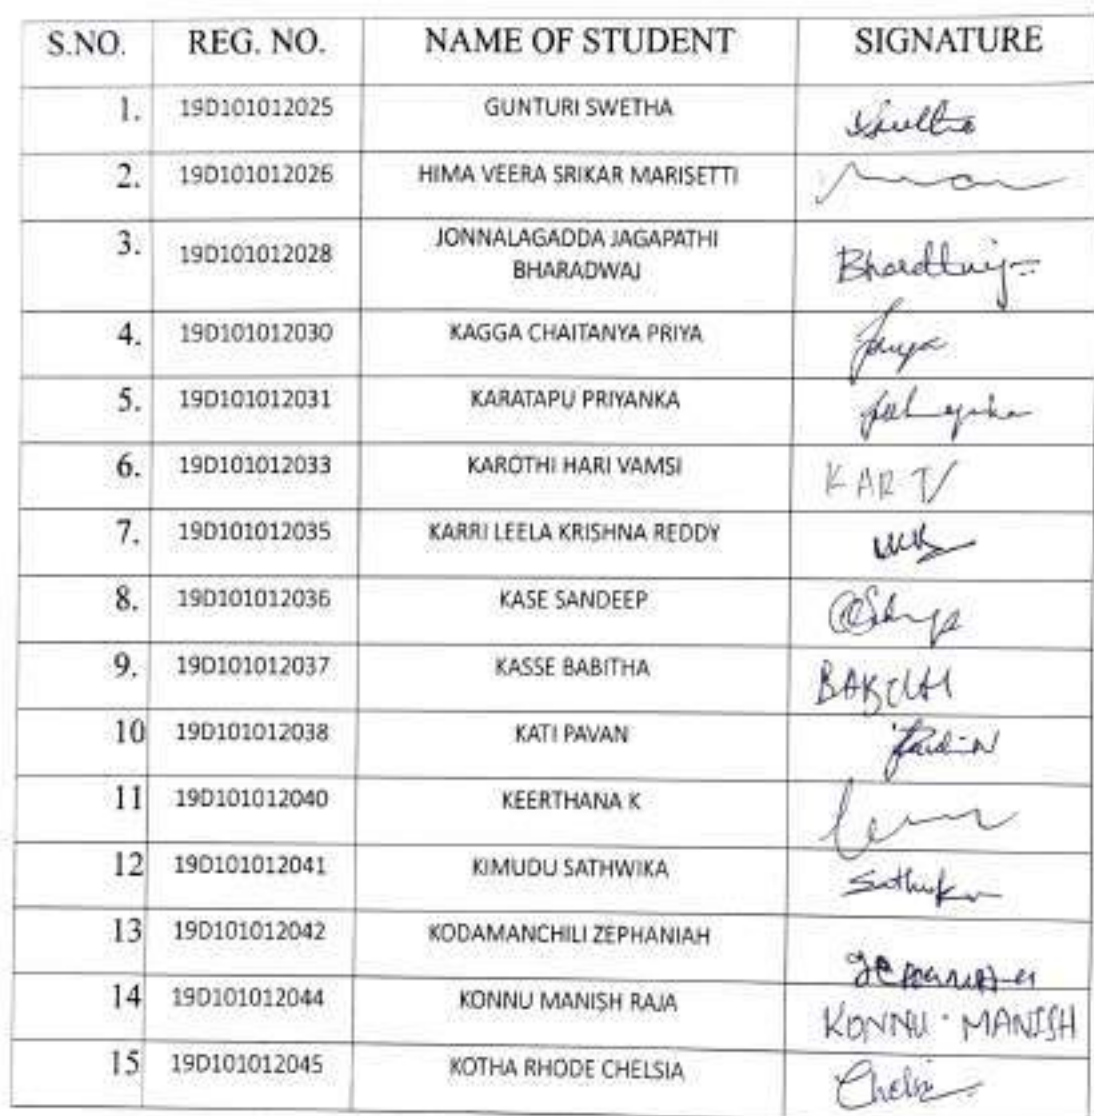 S.NO. REG. NO. NAME OF STUDENT SIGNATURE
1. 19D101012025 GUNTURI SWETHA Swetha
2. 19D101012026 HIMA VEERA SRIKAR MARISETTI
3. 19D101012028 JONNALAGADDA JAGAPATHI
BHARADWAJ
4. 19D101012030 KAGGA CHAITANYA PRIYA
5. 19D101012031 KARATAPU PRIYANKA
6. 19D101012033 KAROTHI HARI VAMSI
7. 19D101012035 KARRI LEELA KRISHNA REDDY
8. 19D101012036 KASE SANDEEP
9. 19D101012037 KASSE BABITHA
10 19D101012038 KATI PAVAN
11 19D101012040 KEERTHANA K
12 19D101012041 KIMUDU SATHWIKA
13 19D101012042 KODAMANCHILI ZEPHANIAH
14 19D101012044 KONNU MANISH RAJA KONNU . MANISH
15 19D101012045 KOTHA RHODE CHELSIA